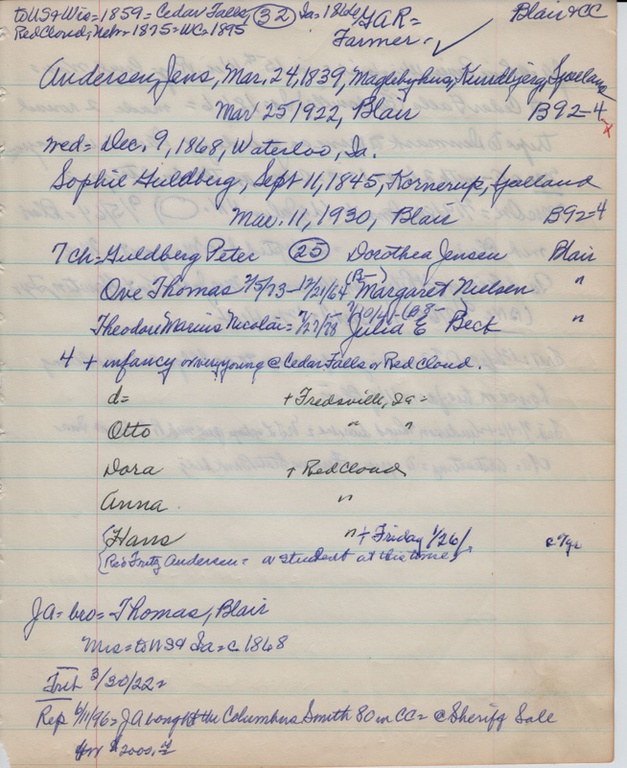 to US & Wis = 1859 = Cedar Falls, (32) Ia = 1866 GAR = Blair & CC
Red Cloud, Neb = 1875 = WC = 1895 Farmer
Andersen, Jens, Mar. 24, 1839, Maglebyhus, Kundbjerg, Sjaelland
Mar 25 1922, Blair B92-4
wed = Dec. 9, 1868, Waterloo, Ia.
Sophie Guldberg, Sept 11, 1845, Kornerup, Sjaelland
Mar. 11, 1930, Blair B92-4
7 ch = Guldberg Peter (25) Dorothea Jensen Blair
Ove Thomas 2/5/73 - 12/21/64 (B- Margaret Nielsen "
Theodore Marius Nicolai = 7/27/78 Julia E Beck "
4 + infancy or very young @ Cedar Falls or Red Cloud.
d= + Fredsville, Ia =
Otto " "
Dora + Red Cloud
Anna "
{Hans " + Friday 1/26/
{Rev Fritz Andersen = a student at this time)
JA = bro = Thomas, Blair
Mrs = to US & Ia = c 1868
Trib 3/30/22 =
Rep 6/11/96 = JA bought the Columbus Smith 80 in CC = @ Sheriff Sale
for $2000.